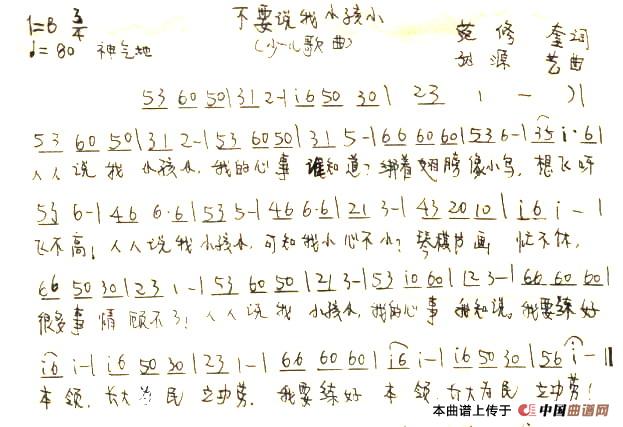 不要说我小孩小
1=B 3/4
(少儿歌曲)
♩=80 神气地
范修奎词
源艺曲
53 60 50|31 2-|i6 50 30|23 1 - )|
53 60 50|31 2-|53 60 50|31 5-|66 60 60|53 6-|35 i·6|
人人说我小孩小,我的心事谁知道?绑着翅膀像小鸟,想飞呀
53 6-|46 6·6|53 5-|46 6·6|21 3-|43 20 10|i6 i-|
飞不高!人人说我小孩小,可知我小心不小?琴棋书画忙不休,
66 50 30|23 1-|53 60 50|21 3-|53 i0 60|12 3-|66 60 60|
很多事情顾不了!人人说我小孩小,我的心事我知说。我要练好
i6 i-|i6 50 30|23 1-|66 60 60|i6 i-|i6 50 30|56 i-||
本领,长大为民立功劳。我要练好本领,长大为民立功劳!
本曲谱上传于 中国曲谱网